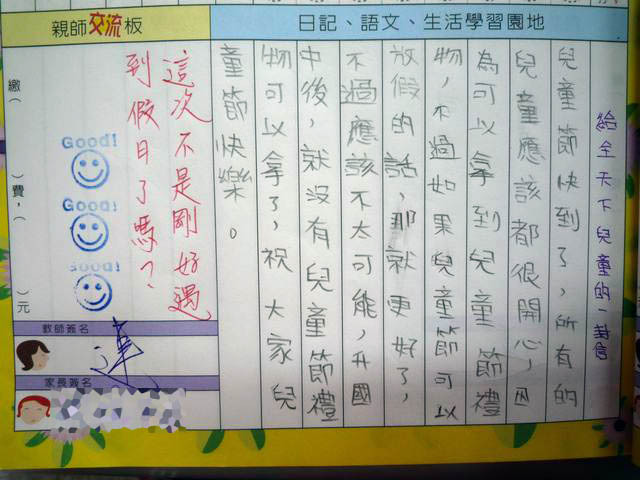 親師交流板
日記、語文、生活學習園地
給全天下兒童的一封信
兒童節快到了，所有的
兒童應該都很開心，因
為可以拿到兒童節禮
物，不過如果兒童節可以
放假的話，那就更好了，
不過應該不太可能，升國
中後，就沒有兒童節禮
物可以拿了，祝大家兒
童節快樂。
這次不是剛好遇
到假日了嗎？
繳（　）費，（　）元
Good!
Good!
Good!
教師簽名
家長簽名